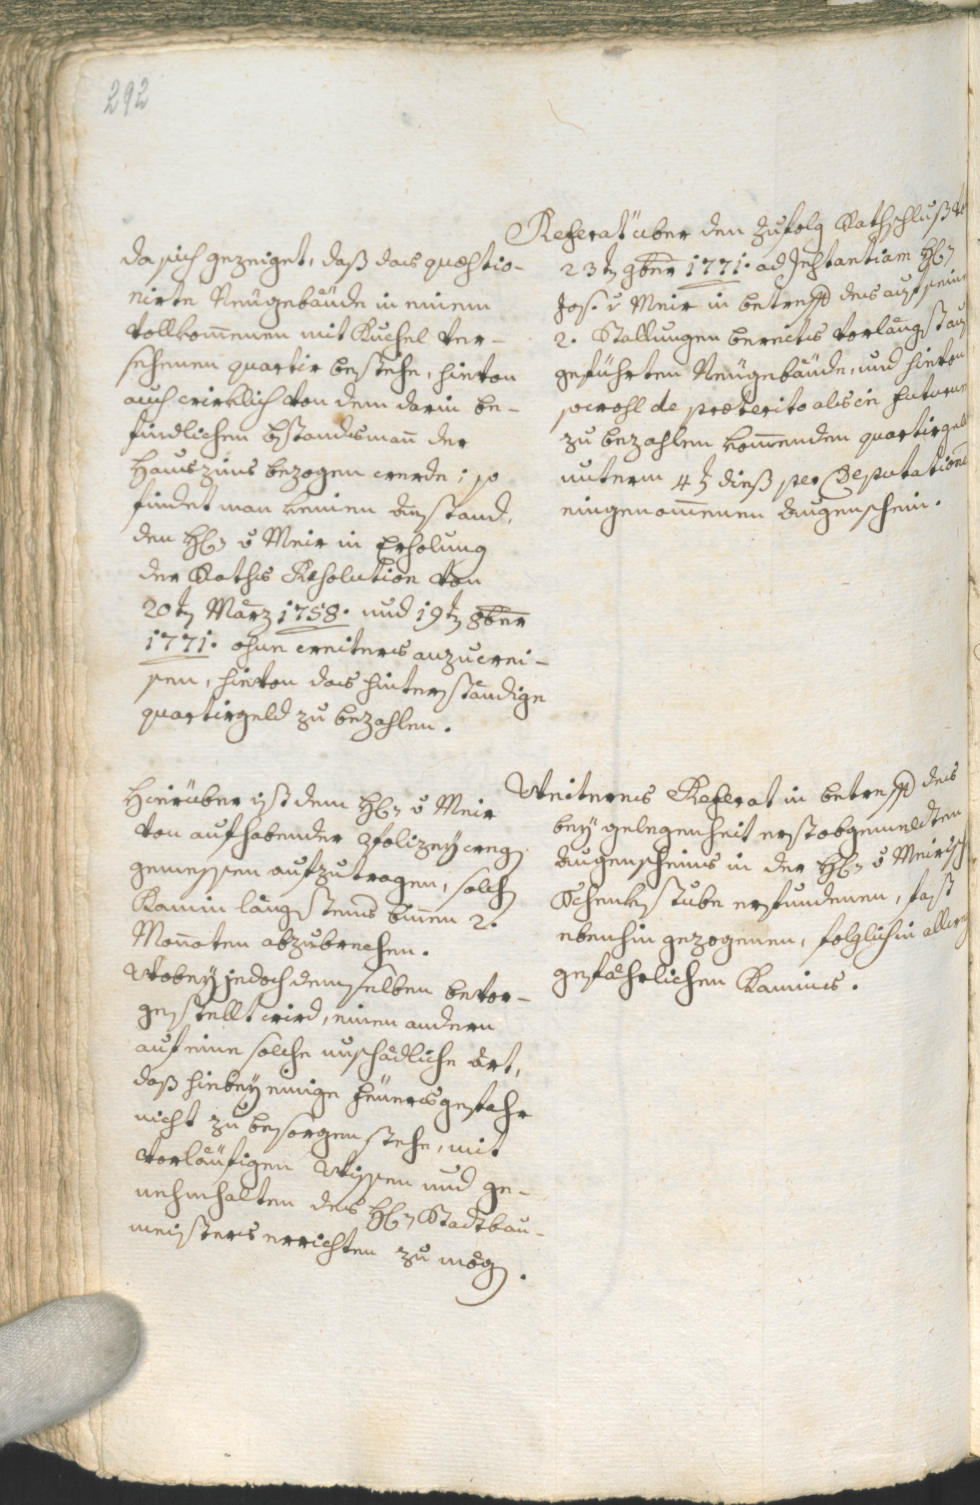 292
Referat über den zufolg Rathschluß de
23tn 9ber 1771. ad Instantiam Hl:
Jos. v Meir in betreff des auf seine
2. Stallungen bereits vorlängst auf
geführten Neügebäude, und hievon
sowohl de præterito als in futurum
zu bezahlen kom̄enden quartirgeld
unterm 4tn dieß per Deputationem
eingenom̄enen Augenschein.
da sich gezeiget, daß das quæstio-
nirte Neügebäude in einem
vollkom̄enen mit Kuchel ver-
sehenen quartir bestehe, hievon
auch wirklich von dem darin be-
findlichen bstandsman̄ der
Hauszins bezogen werde; so
findet man keinen Anstand,
den Hl: v Meir in Erholung
der Raths Resolution von
20tn März 1758. und 19tn 8ber
1771. ohne weiters anzuwei-
sen, hievon das hinterständige
quartirgeld zu bezahlen.
Weiteres Referat in betreff des
bey gelegenheit erstobgemeldten
Augenscheins in der Hl: v Meirisch
Schenkstube erfundenen, fast
ebenhin gezogenen, folglich in allweg
gefährlichen Kamins.
Hierüber ist dem Hl: v Meir
von aufhabender Polizey wegen
gemessen aufzutragen, solch
Kamin längstens bin̄en 2.
Mon̄aten abzubrechen.
Wobey jedoch demselben bevor-
gestellt wird, einen andern
auf eine solche unschädliche Art,
daß hiebey einige feüersgefahr
nicht zu besorgen stehe, mit
vorläufigen Wissen und ge-
nehmhalten des Hl: Stadtbau-
meisters errichten zu mögen.